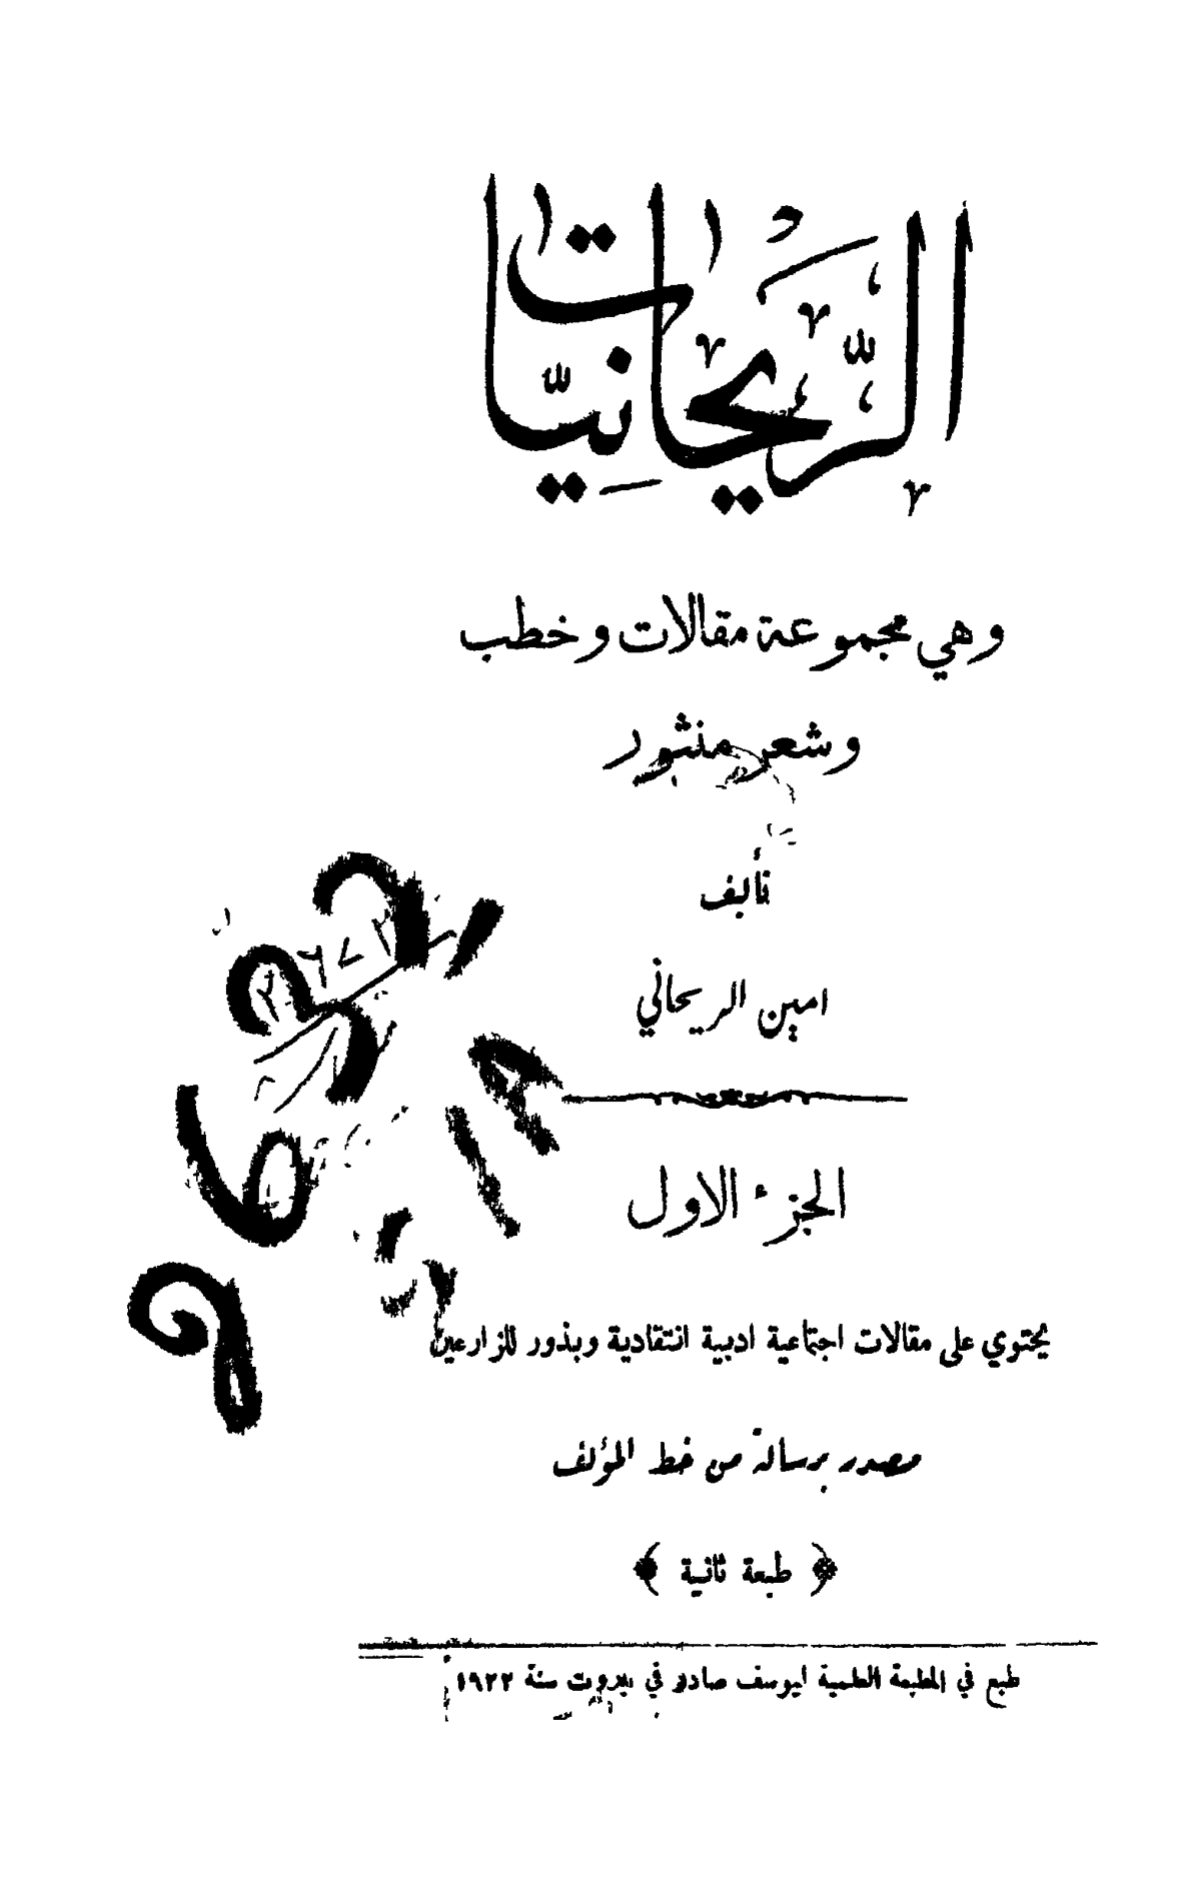 الرَّيحانيّات
وهي مجموعة مقالات وخطب
وشعر منثور
تأليف
امين الريحاني
الجزء الاول
يحتوي على مقالات اجتماعية ادبية انتقادية وبذور للزارعين
مصدر برسالة من خط المؤلف
﴿ طبعة ثانية ﴾
طبع في المطبعة العلمية ليوسف صادر في بيروت سنة ١٩٢٢